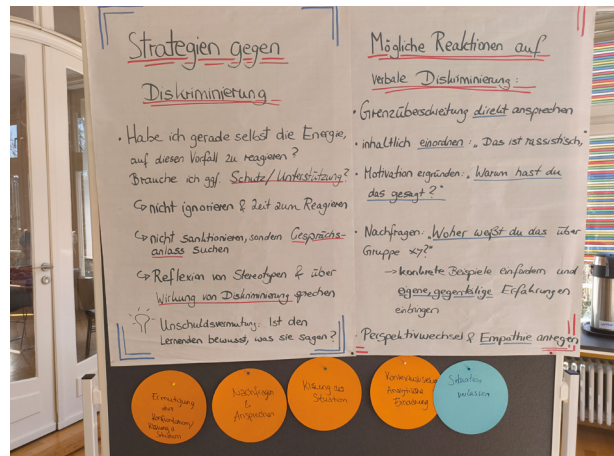 Strategien gegen
Diskriminierung
• Habe ich gerade selbst die Energie,
auf diesen Vorfall zu reagieren?
Brauche ich ggf. Schutz/Unterstützung?
↳ nicht ignorieren & Zeit zum Reagieren
↳ nicht sanktionieren, sondern Gesprächs-
anlass suchen
↳ Reflexion von Stereotypen & über
Wirkung von Diskriminierung sprechen
Unschuldsvermutung: Ist den
Lernenden bewusst, was sie sagen?
Mögliche Reaktionen auf
verbale Diskriminierung:
• Grenzüberschreitung direkt ansprechen
• inhaltlich einordnen: „Das ist rassistisch,"
• Motivation ergründen: „Warum hast du
das gesagt?"
• Nachfragen: „Woher weißt du das über
Gruppe xy?"
→ konkrete Beispiele einfordern und
eigene, gegenteilige Erfahrungen
einbringen
• Perspektivwechsel & Empathie anregen
Ermutigung
zur
Konfrontation/
Klärung d.
Situation
Nachfragen
&
Ansprechen
Klärung der
Situation
Einordnung
Situation
verlassen